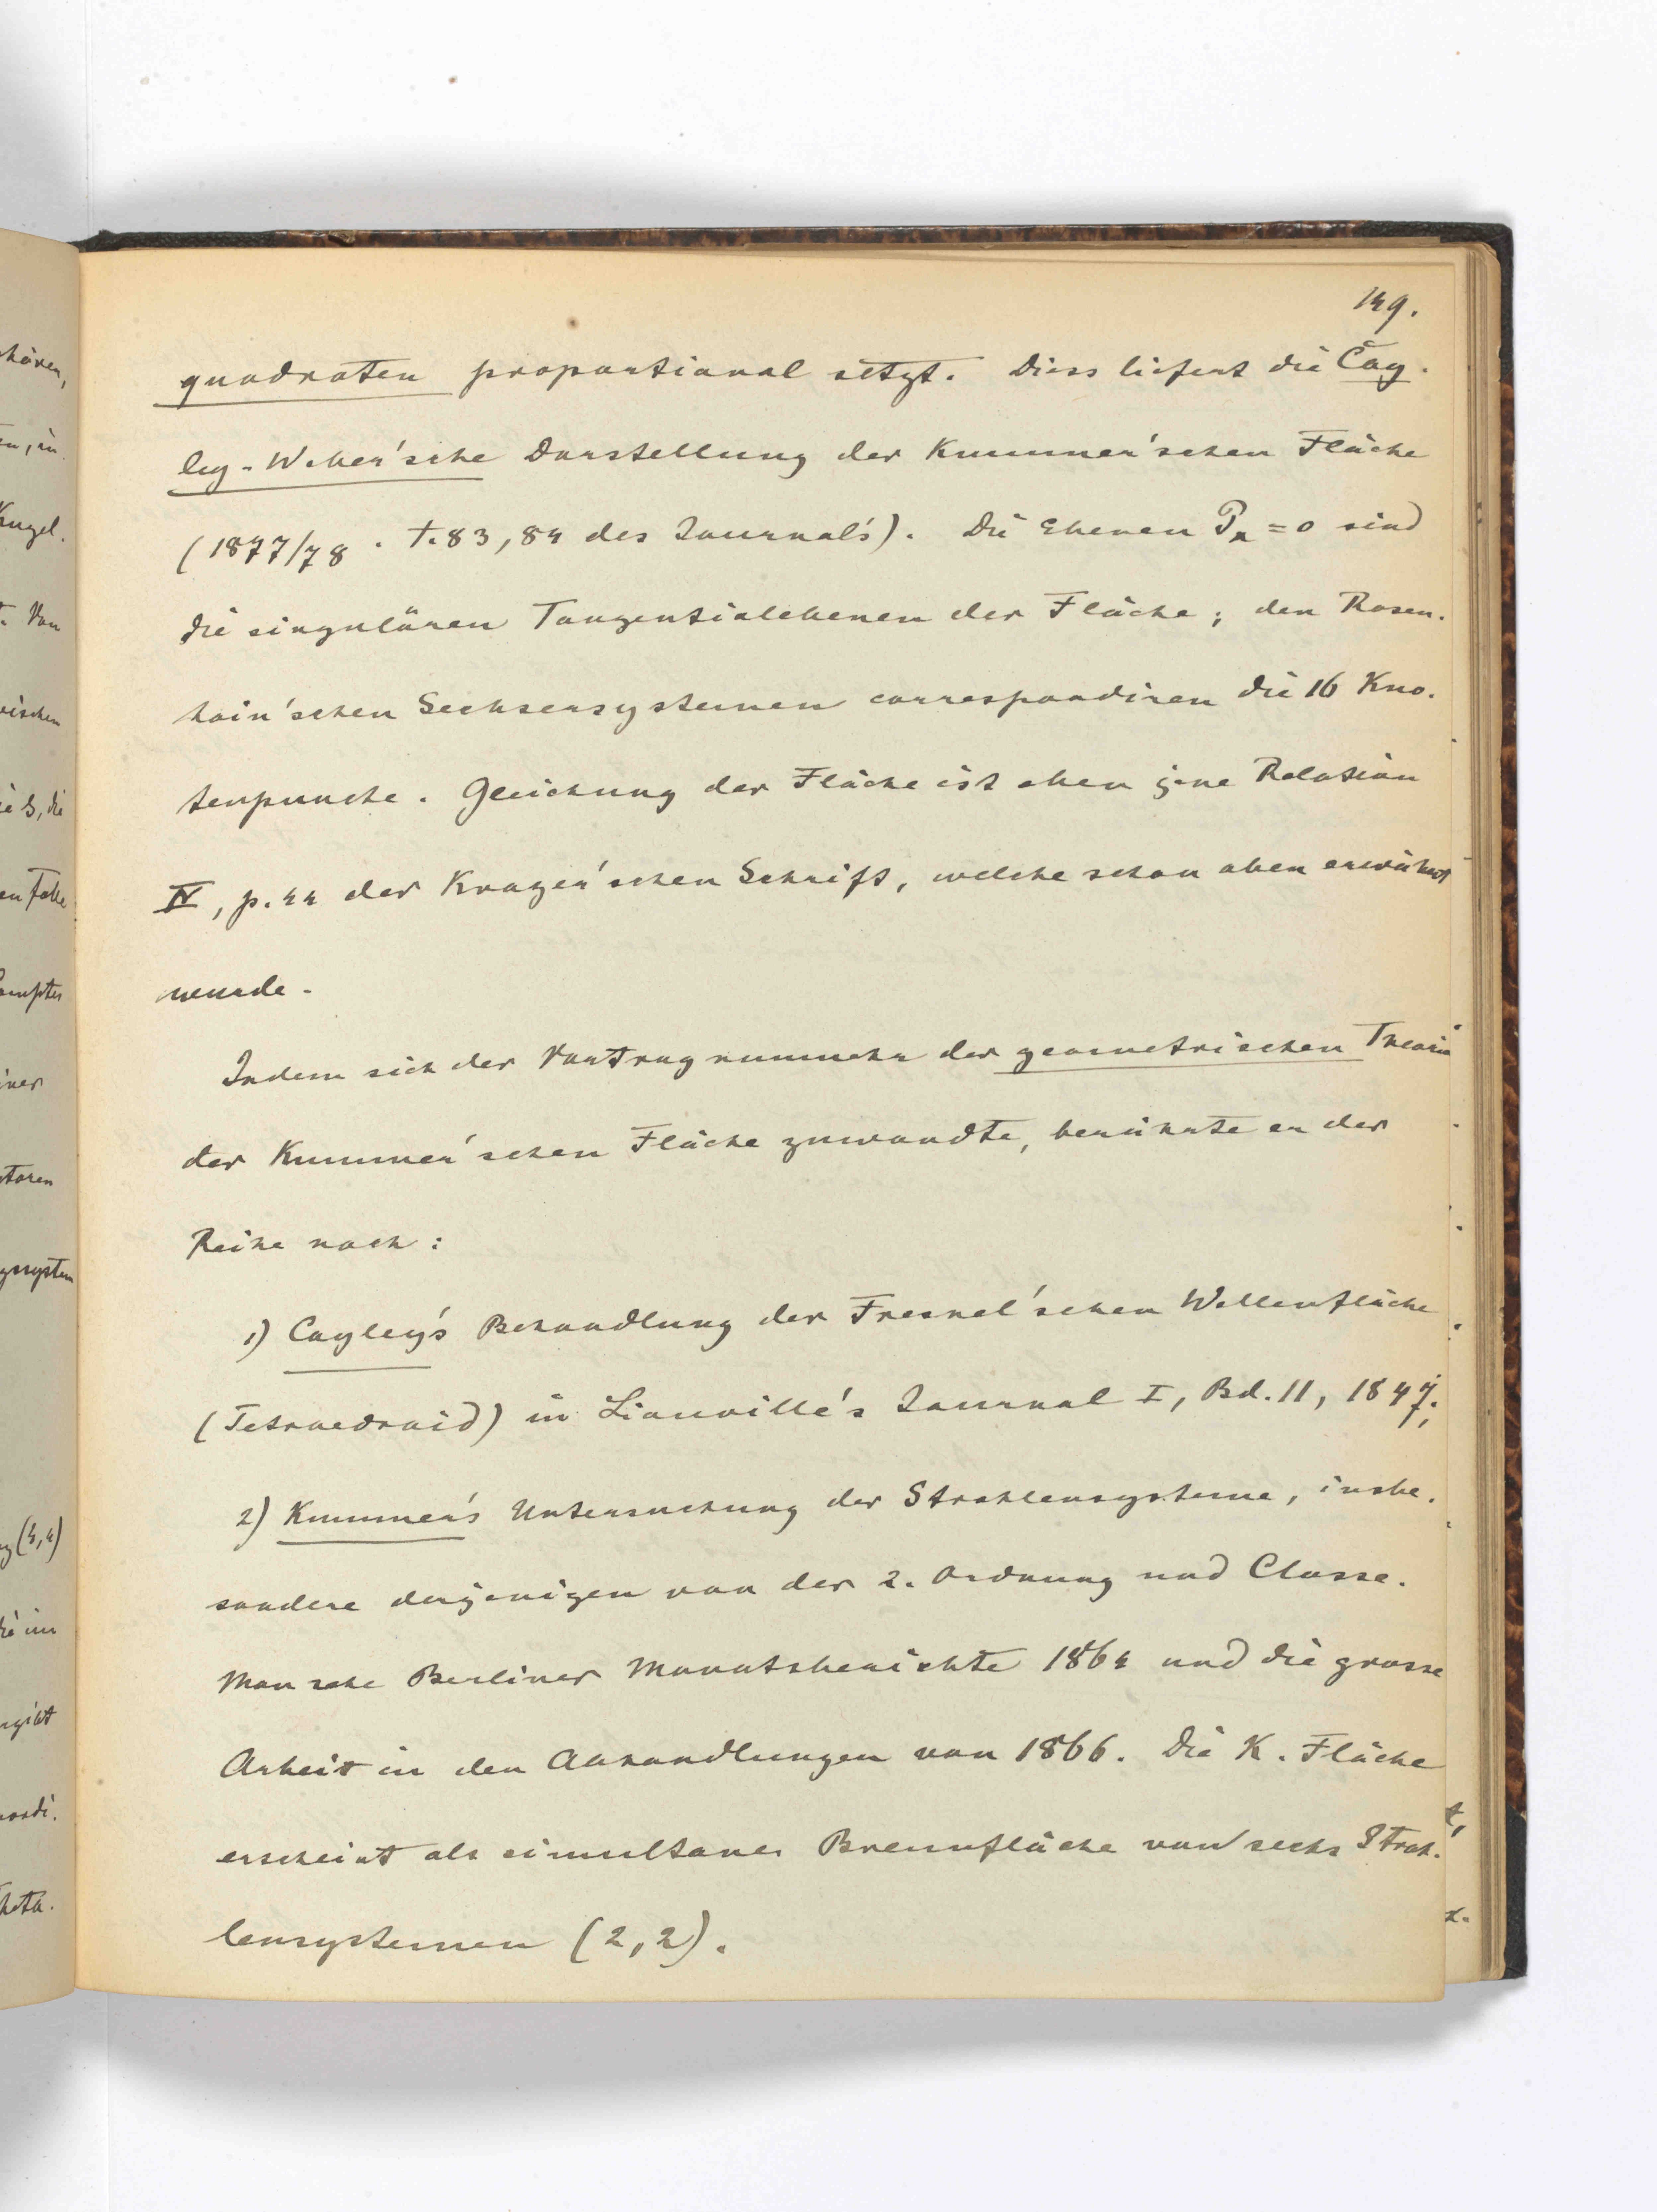 149.
quadraten proportional setzt. Diess liefert die Cay-
ley-Weber'sche Darstellung der Kummer'schen Fläche
(1877/78. T. 83, 84 des Journals). Die Ebenen Pα = 0 sind
die singulären Tangentialebenen der Fläche; den Rosen-
hain'schen Sechsersystemen correspondiren die 16 Kno-
tenpuncte. Gleichung der Fläche ist eben jene Relation
IV, p. 44 der Krazer'schen Schrift, welche schon oben erwähnt
wurde.
Indem sich der Vortrag nunmehr der geometrischen Theorie
der Kummer'schen Fläche zuwandte, berührte er der
Reihe nach:
1) Cayley's Behandlung der Fresnel'schen Wellenfläche
(Tetraedroid) in Liouville's Journal I, Bd. 11, 1847;
2) Kummer's Untersuchung der Strahlensysteme, insbe-
sondere derjenigen von der 2. Ordnung und Classe.
Man sehe Berliner Monatsberichte 1864 und die grosse
Arbeit in den Abhandlungen von 1866. Die K. Fläche
erscheint als simultane Brennfläche von sechs Strah-
lensystemen (2,2).